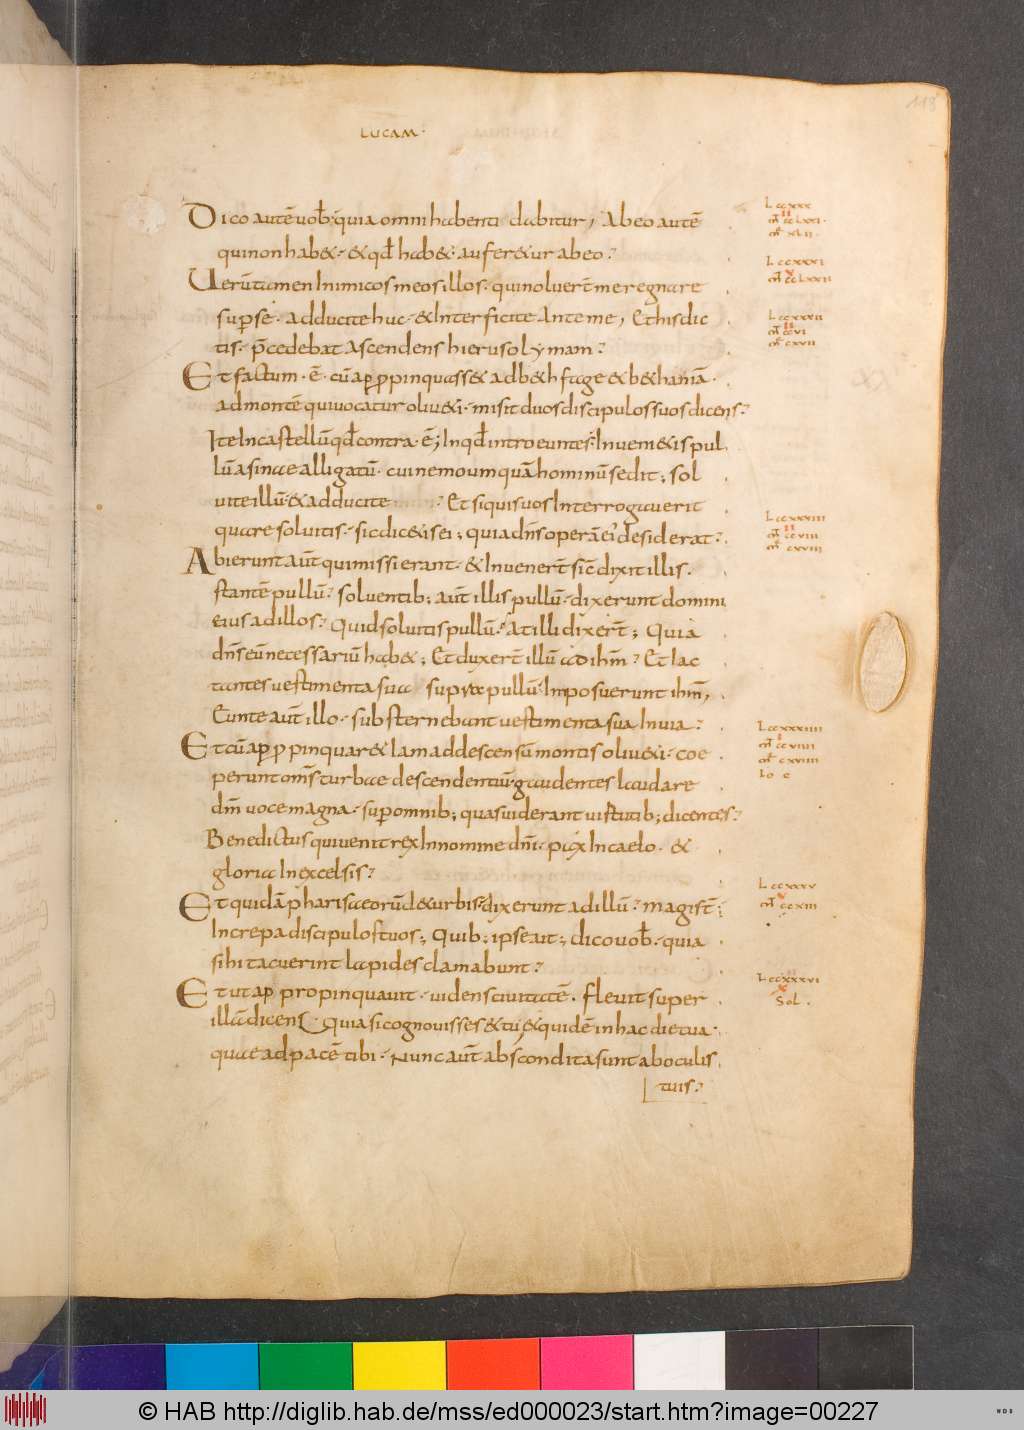 118
LUCAM·
Dico autē uob̄· quia omni habenti dabitur, Ab eo autē
qui non hab&· & qd̄ hab& aufer&ur ab eo?
Uerūtamen Inimicos meos illos· qui noluer̄t me regnare
sup se· adducite huc· & Interficite ante me, Et his dic
tis· p̄cedebat ascendens hierusolymam?
Et factum· ē· cū app̄pinquass& ad b&hfage & b&haniā·
ad montē qui uocatur oliu&i· misit duos discipulos suos dicens?
Ite In castellū qd̄ contra· ē, In qd̄ introeuntes· Inueni&is pul
lū asinae alligatū· cui nemo umquā hominū sedit; sol
uite illū· & adducite ? Et si quis uos Interrogauerit
quare soluitis· sic dic&is ei; quia dn̄s operā ei' desiderat?
Abierunt aūt qui missi erant· & Inuener̄t sic̄ dixit illis·
stantē pullū? soluentib; aūt illis pullū· dixerunt domini
eius ad illos? Quid soluitis pullū? At illi dixer̄t; Quia
dn̄s eū necessariū hab&; Et duxer̄t illū ad ihm̄? Et iac
tantes uestimenta sua supra pullū· Imposuerunt ihm̄,
Eunte aūt illo· substernebant uestimenta sua In uia?
Et cū app̄pinquar& iam ad descensū montis oliu&i· coe
perunt om̄s turbae descendentiū· gaudentes laudare
dm̄ uoce magna· sup omnib; quas uiderant uirtutib; dicentes?
Benedictus qui uenit rex In nomine dn̄i· pax In caelo· &
gloria In excelsis?
Et quidā pharisaeorū de turbis· dixerunt ad illū? magist̄;
Increpa discipulos tuos; Quib; ipse ait; dico uob̄· quia
si hi tacuerint lapides clamabunt?
Et ut appropinquauit· uidens ciuitatē· fleuit super
illā dicens· Quia si cognouisses & tu, & quidē in hac die tua·
quae ad pacē tibi· Nunc aūt abscondita sunt ab oculis
tuis?
L ccxxx
cclxxi·
xlii·
L ccxxxi
cclxxii
L ccxxxii
ccvi
cxvii
L ccxxxiii
ccviii
cxviii
L ccxxxiiii
ccviiii
cxviiii
Io c
L ccxxxv
ccxiii
L ccxxxvi
Sol·
© HAB http://diglib.hab.de/mss/ed000023/start.htm?image=00227
WDB